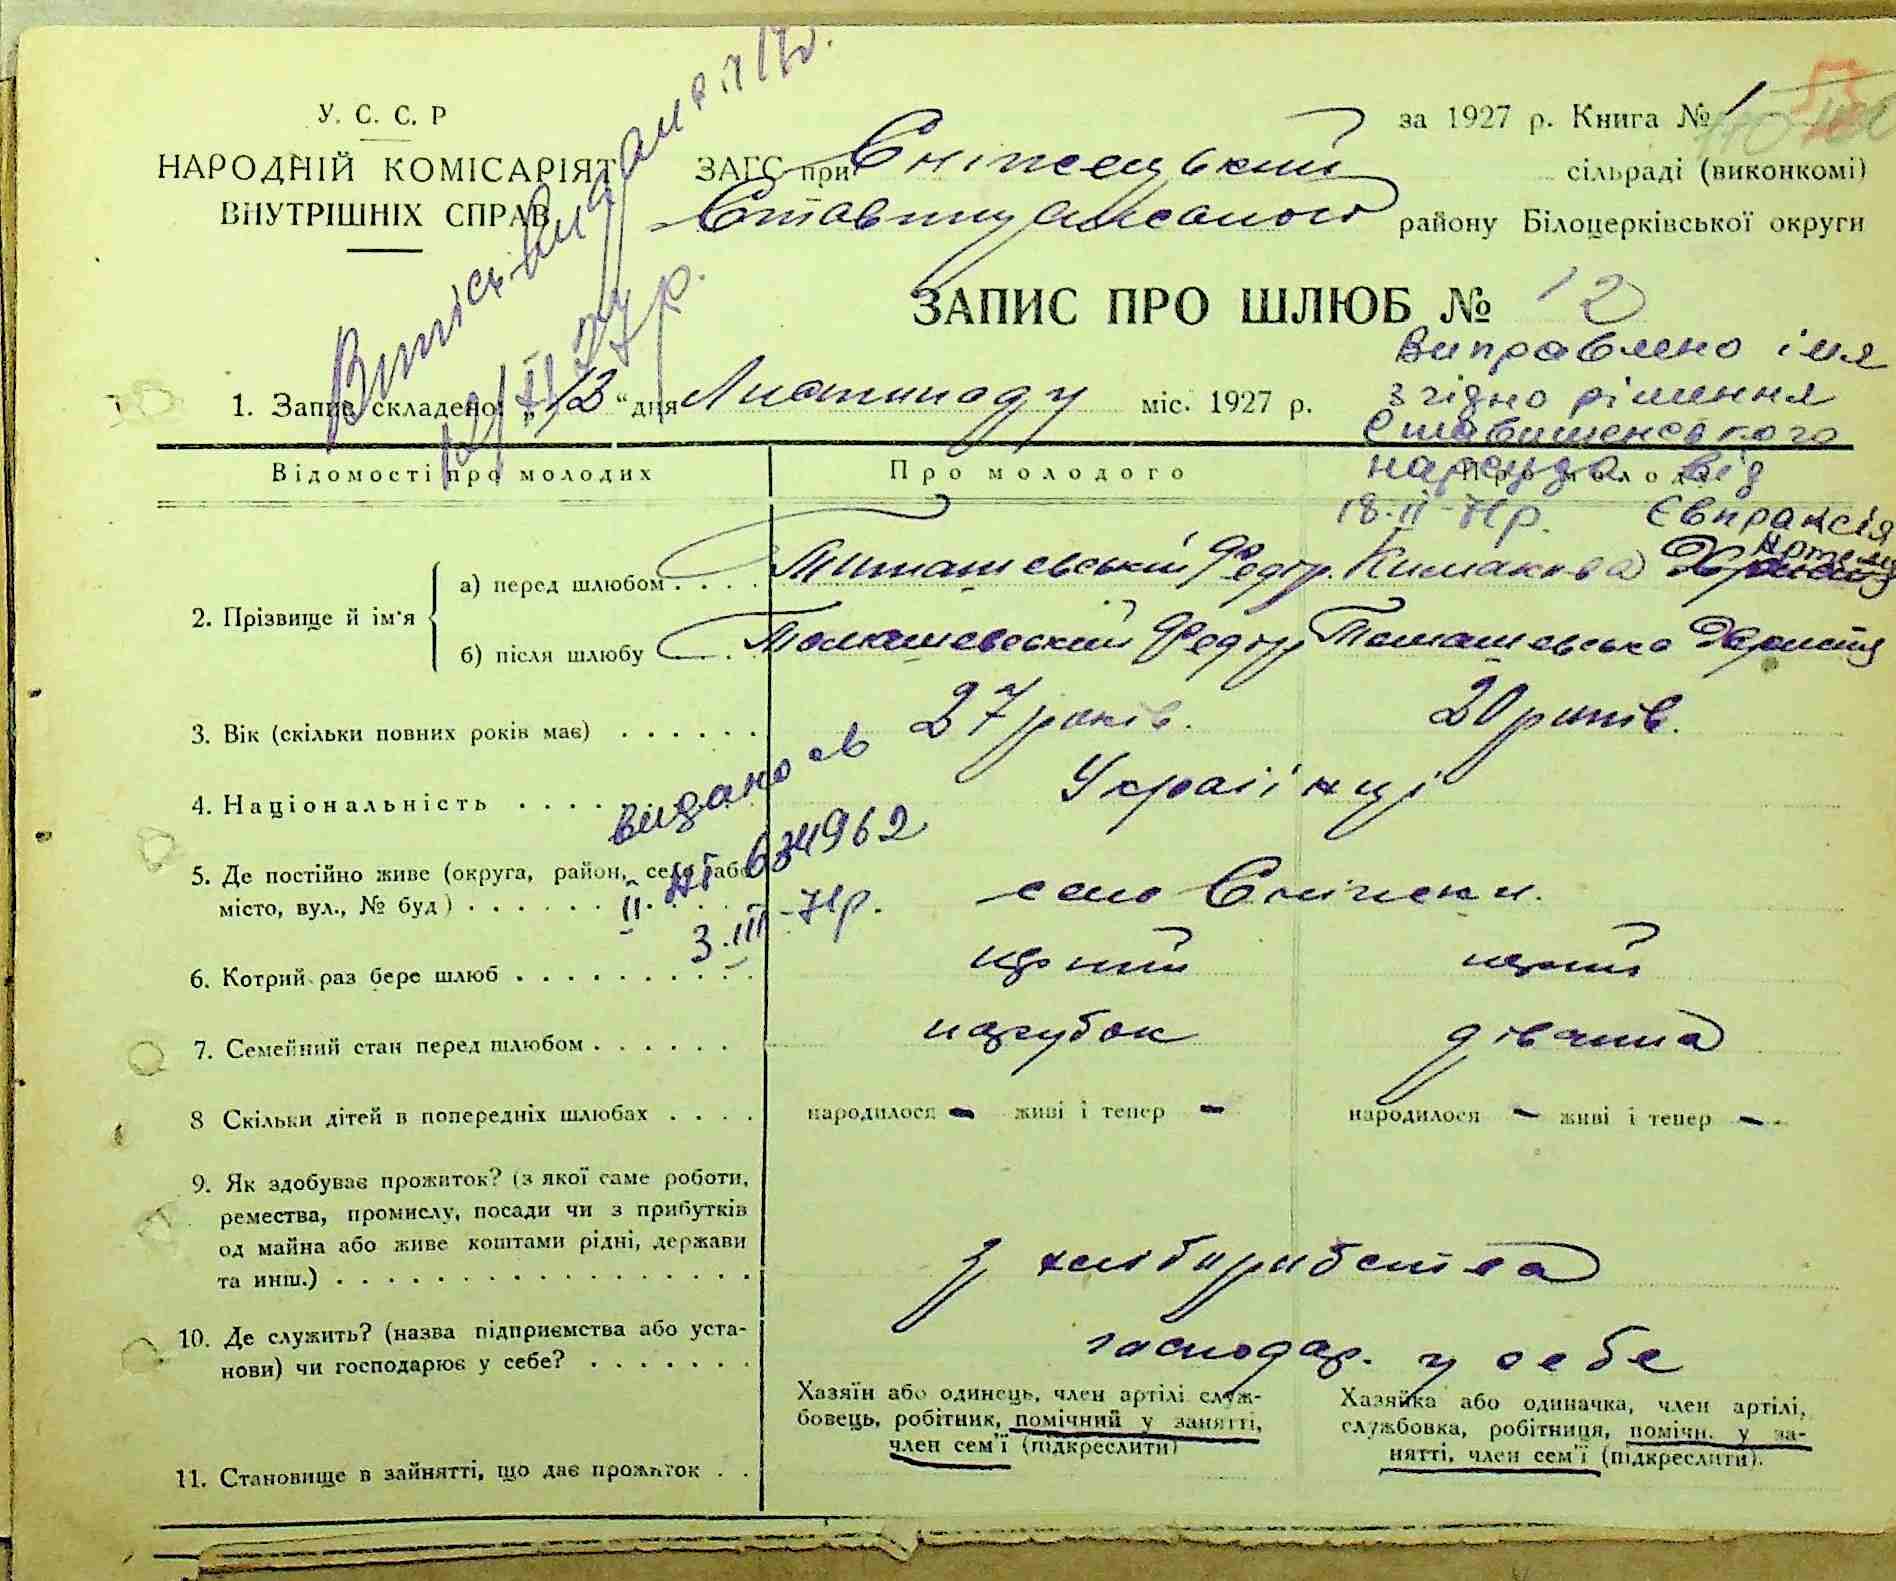 У. С. С. Р
НАРОДНІЙ КОМІСАРІЯТ
ВНУТРІШНІХ СПРАВ
за 1927 р. Книга № 1
ЗАГС при Сніжецький сільраді (виконкомі)
району Білоцерківської округи
ЗАПИС ПРО ШЛЮБ № 12
Виправлено імя
згідно рішення
нарсуда від
18-II-71р. Євпраксія
1. Запис складено: „12“ дня Листопаду міс. 1927 р.
Відомості про молодих
Про молодого
2. Прізвище й ім'я
а) перед шлюбом . . . . Федір
б) після шлюбу . Томашевський Федір Томашевська Христя
3. Вік (скільки повних років має) . . . . . . 27 років. 20 років.
4. Національність . . . . Україінці
видано св
634962
3.III-71р.
5. Де постійно живе (округа, район, село або
місто, вул., № буд) . . . . . . село Сніжки.
6. Котрий раз бере шлюб . . . . . . . . . . перший перший
7. Семейний стан перед шлюбом . . . . . . парубок дівчина
8 Скільки дітей в попередніх шлюбах . . . . народилося - живі і тепер - народилося - живі і тепер -
9. Як здобуває прожиток? (з якої саме роботи,
ремества, промислу, посади чи з прибутків
од майна або живе коштами рідні, держави
та инш.) . . . . . . . . . . . . . . . . . з хліборобства
10. Де служить? (назва підприємства або уста-
нови) чи господарює у себе? . . . . . . . господар. у себе
Хазяїн або одинець, член артілі служ-
бовець, робітник, помічний у занятті,
член сем'ї (підкреслити)
Хазяйка або одиначка, член артілі,
службовка, робітниця, помічн. у за-
нятті, член сем'ї (підкреслити).
11. Становище в зайнятті, що дає прожиток . .